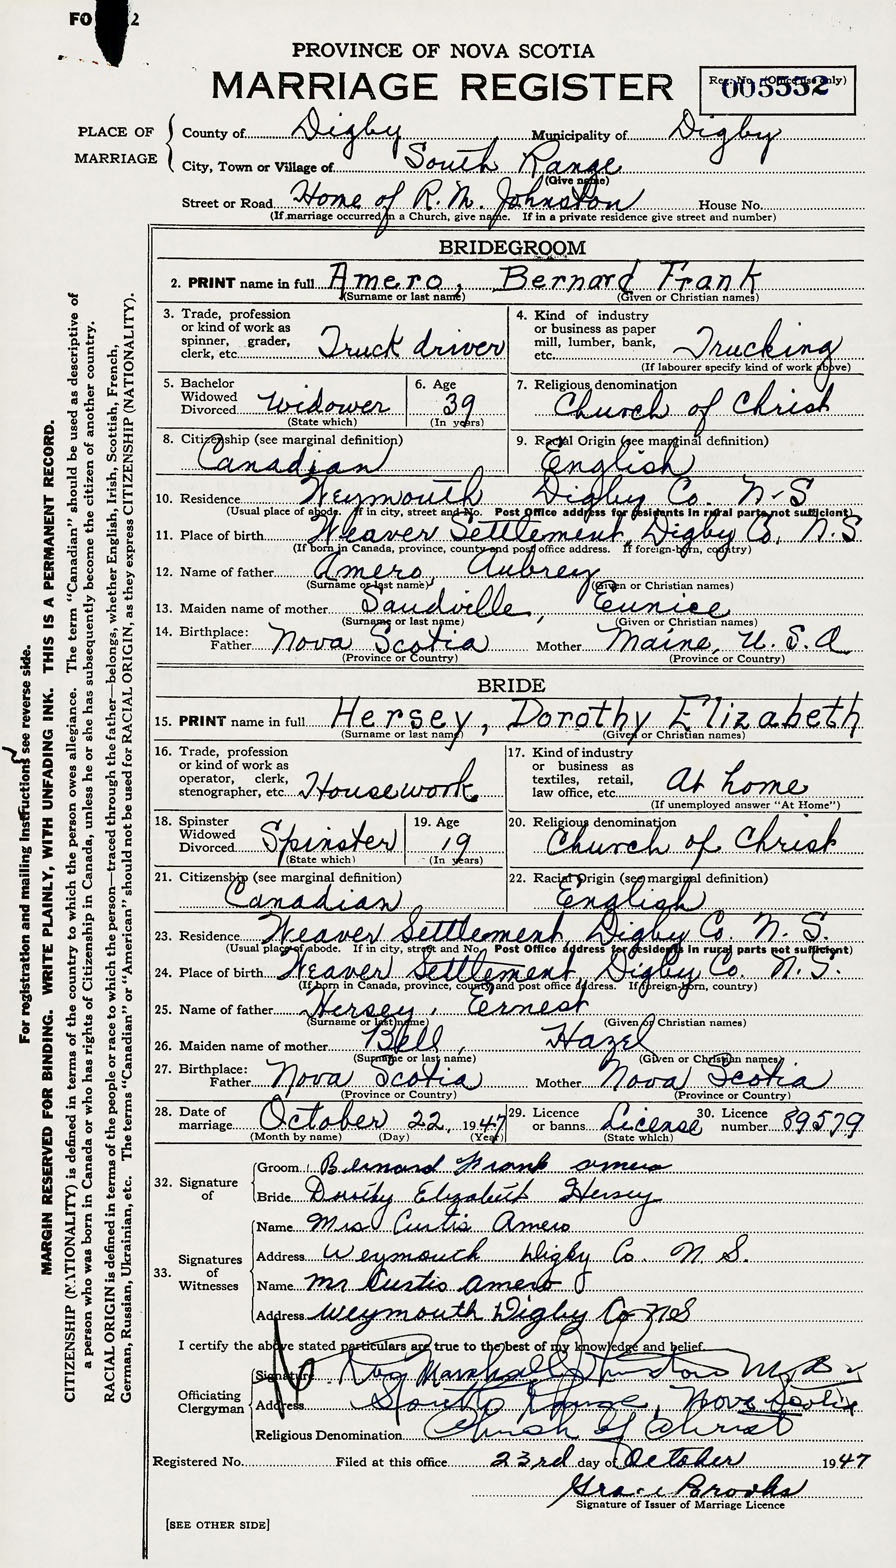 FO 2
PROVINCE OF NOVA SCOTIA
MARRIAGE REGISTER
Reg. No. (Office use only)
005552
PLACE OF MARRIAGE
County of Digby Municipality of Digby
City, Town or Village of South Range
(Give name)
Street or Road Home of R. M. Johnston House No.
(If marriage occurred in a Church, give name. If in a private residence give street and number)
BRIDEGROOM
2. PRINT name in full Amero, Bernard Frank
(Surname or last name) (Given or Christian names)
3. Trade, profession or kind of work as spinner, grader, clerk, etc. Truck driver
4. Kind of industry or business as paper mill, lumber, bank, etc. Trucking
(If labourer specify kind of work above)
5. Bachelor Widowed Divorced Widower
(State which)
6. Age 39
(In years)
7. Religious denomination Church of Christ
8. Citizenship (see marginal definition) Canadian
9. Racial Origin (see marginal definition) English
10. Residence Weymouth Digby Co. N-S
(Usual place of abode. If in city, street and No. Post Office address for residents in rural parts not sufficient)
11. Place of birth Weaver Settlement, Digby Co. N.S
(If born in Canada, province, county and post office address. If foreign-born, country)
12. Name of father Amero, Aubrey
(Surname or last name) (Given or Christian names)
13. Maiden name of mother Saudville, Eunice
(Surname or last name) (Given or Christian names)
14. Birthplace: Father Nova Scotia Mother Maine, U. S. A
(Province or Country) (Province or Country)
BRIDE
15. PRINT name in full Hersey, Dorothy Elizabeth
(Surname or last name) (Given or Christian names)
16. Trade, profession or kind of work as operator, clerk, stenographer, etc. Housework
17. Kind of industry or business as textiles, retail, law office, etc. At home
(If unemployed answer "At Home")
18. Spinster Widowed Divorced Spinster
(State which)
19. Age 19
(In years)
20. Religious denomination Church of Christ
21. Citizenship (see marginal definition) Canadian
22. Racial Origin (see marginal definition) English
23. Residence Weaver Settlement Digby Co. N. S.
(Usual place of abode. If in city, street and No. Post Office address for residents in rural parts not sufficient)
24. Place of birth Weaver Settlement, Digby Co. N.S.
(If born in Canada, province, county and post office address. If foreign-born, country)
25. Name of father Hersey, Ernest
(Surname or last name) (Given or Christian names)
26. Maiden name of mother Bell, Hazel
(Surname or last name) (Given or Christian names)
27. Birthplace: Father Nova Scotia Mother Nova Scotia
(Province or Country) (Province or Country)
28. Date of marriage October 22, 1947
(Month by name) (Day) (Year)
29. Licence or banns License
(State which)
30. Licence number 89579
32. Signature of
Groom Bernard Frank Amero
Bride Dorothy Elizabeth Hersey
33. Signatures of Witnesses
Name Mrs Curtis Amero
Address Weymouth Digby Co. N. S.
Name Mr Curtis Amero
Address Weymouth Digby Co N S
I certify the above stated particulars are true to the best of my knowledge and belief.
Officiating Clergyman
Signature Marshall
Address South Range, Nova Scotia
Religious Denomination Church of Christ
Registered No. Filed at this office 23rd day of October 1947
Grace Brooks
Signature of Issuer of Marriage Licence
[SEE OTHER SIDE]
For registration and mailing instructions see reverse side.
MARGIN RESERVED FOR BINDING. WRITE PLAINLY, WITH UNFADING INK. THIS IS A PERMANENT RECORD.
CITIZENSHIP (NATIONALITY) is defined in terms of the country to which the person owes allegiance. The term "Canadian" should be used as descriptive of
a person who was born in Canada or who has rights of Citizenship in Canada, unless he or she has subsequently become the citizen of another country.
RACIAL ORIGIN is defined in terms of the people or race to which the person—traced through the father—belongs, whether English, Irish, Scottish, French,
German, Russian, Ukrainian, etc. The terms "Canadian" or "American" should not be used for RACIAL ORIGIN, as they express CITIZENSHIP (NATIONALITY).